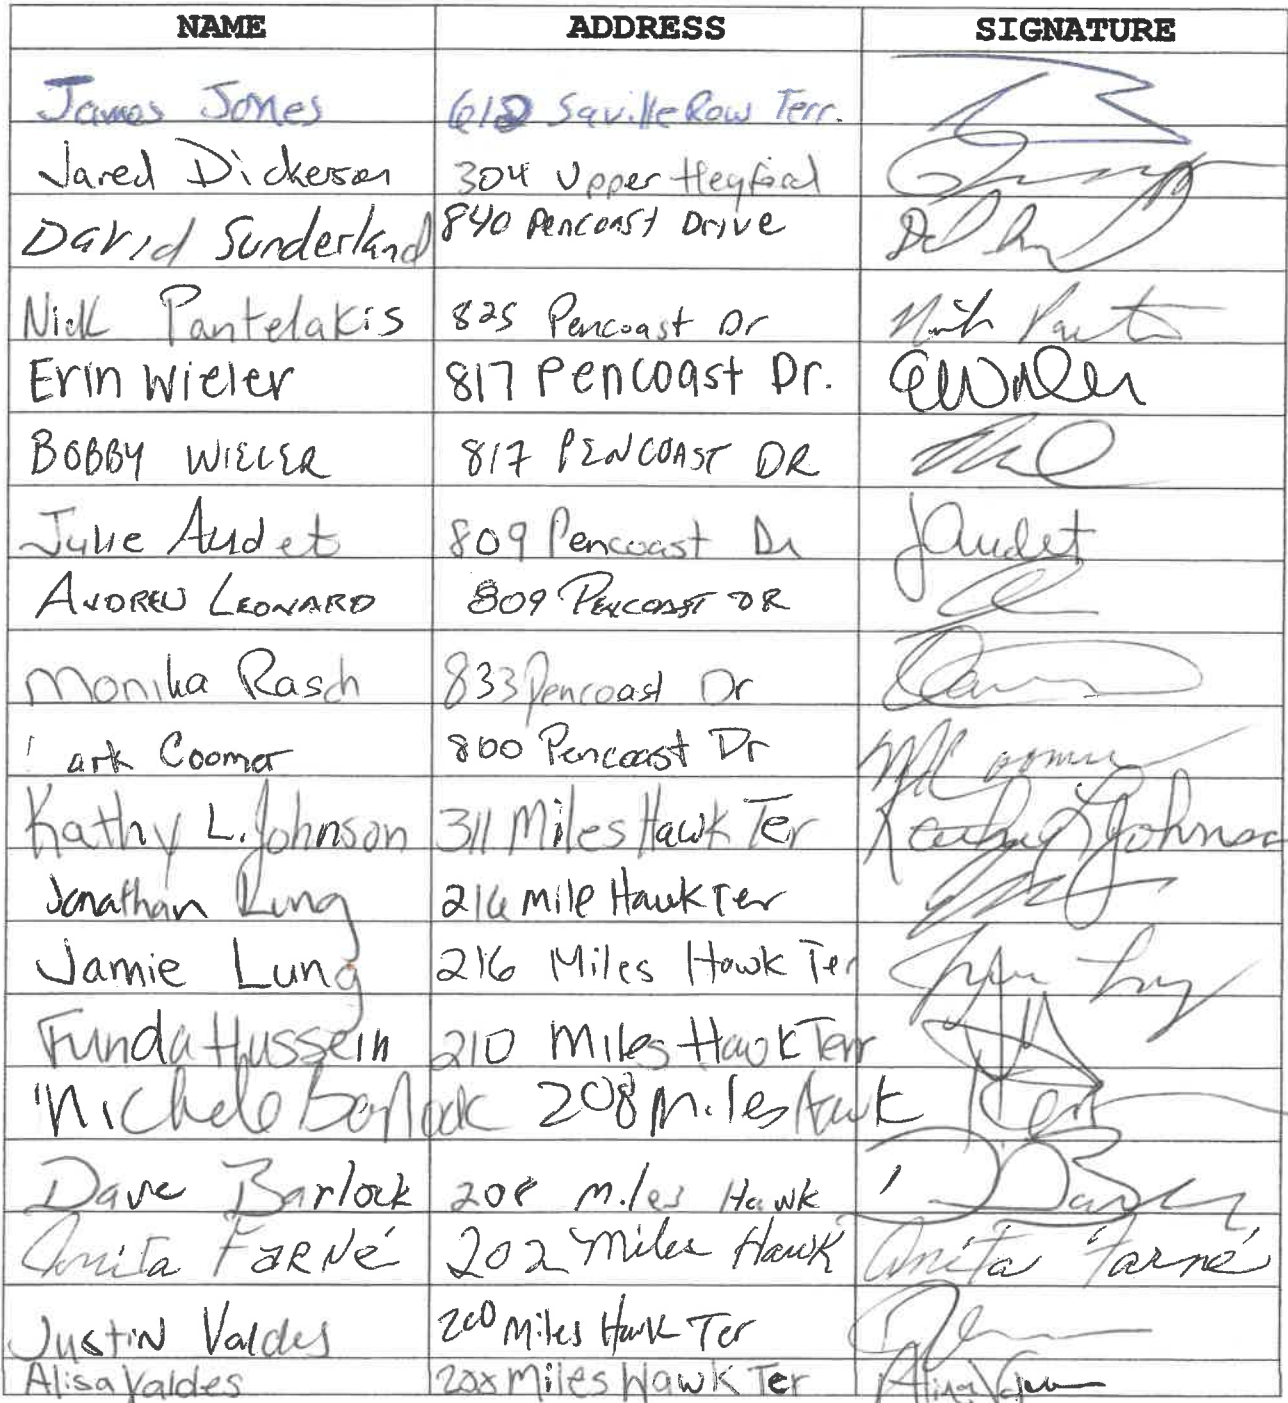 NAME ADDRESS SIGNATURE
James Jones 612 Saville Row Terr.
Jared Dickerson 304 Upper Heyford
David Sunderland 840 Pencoast Drive
Nick Pantelakis 825 Pencoast Dr
Erin Wieler 817 Pencoast Dr. EWieler
BOBBY WIELER 817 PENCOAST DR
Julie Audet 809 Pencoast Dr JAudet
ANDREW LEONARD 809 PENCOAST DR
Monika Rasch 833 Pencoast Dr
ark Coomer 800 Pencoast Dr M Coomer
Kathy L. Johnson 311 Miles Hawk Ter Kathy L Johnson
Jonathan Lung 216 Mile Hawk Ter
Jamie Lung 216 Miles Hawk Ter
Funda Hussein 210 Miles Hawk Terr
Michele Barlock 208 Miles Hawk
Dave Barlock 208 Miles Hawk
Anita FARNé 202 Miles Hawk Anita Farné
Justin Valdes 200 Miles Hawk Ter
Alisa Valdes 200 Miles Hawk Ter